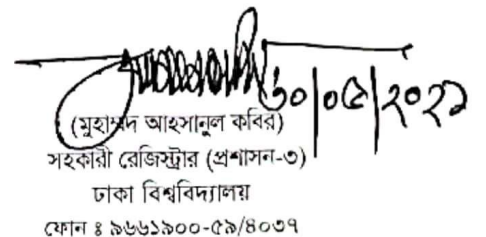 ৩০/০৫/২০২১
(মুহাম্মদ আহসানুল কবির)
সহকারী রেজিস্ট্রার (প্রশাসন-৩)
ঢাকা বিশ্ববিদ্যালয়
ফোন ঃ ৯৬৬১৯০০-৫৯/৪০৩৭